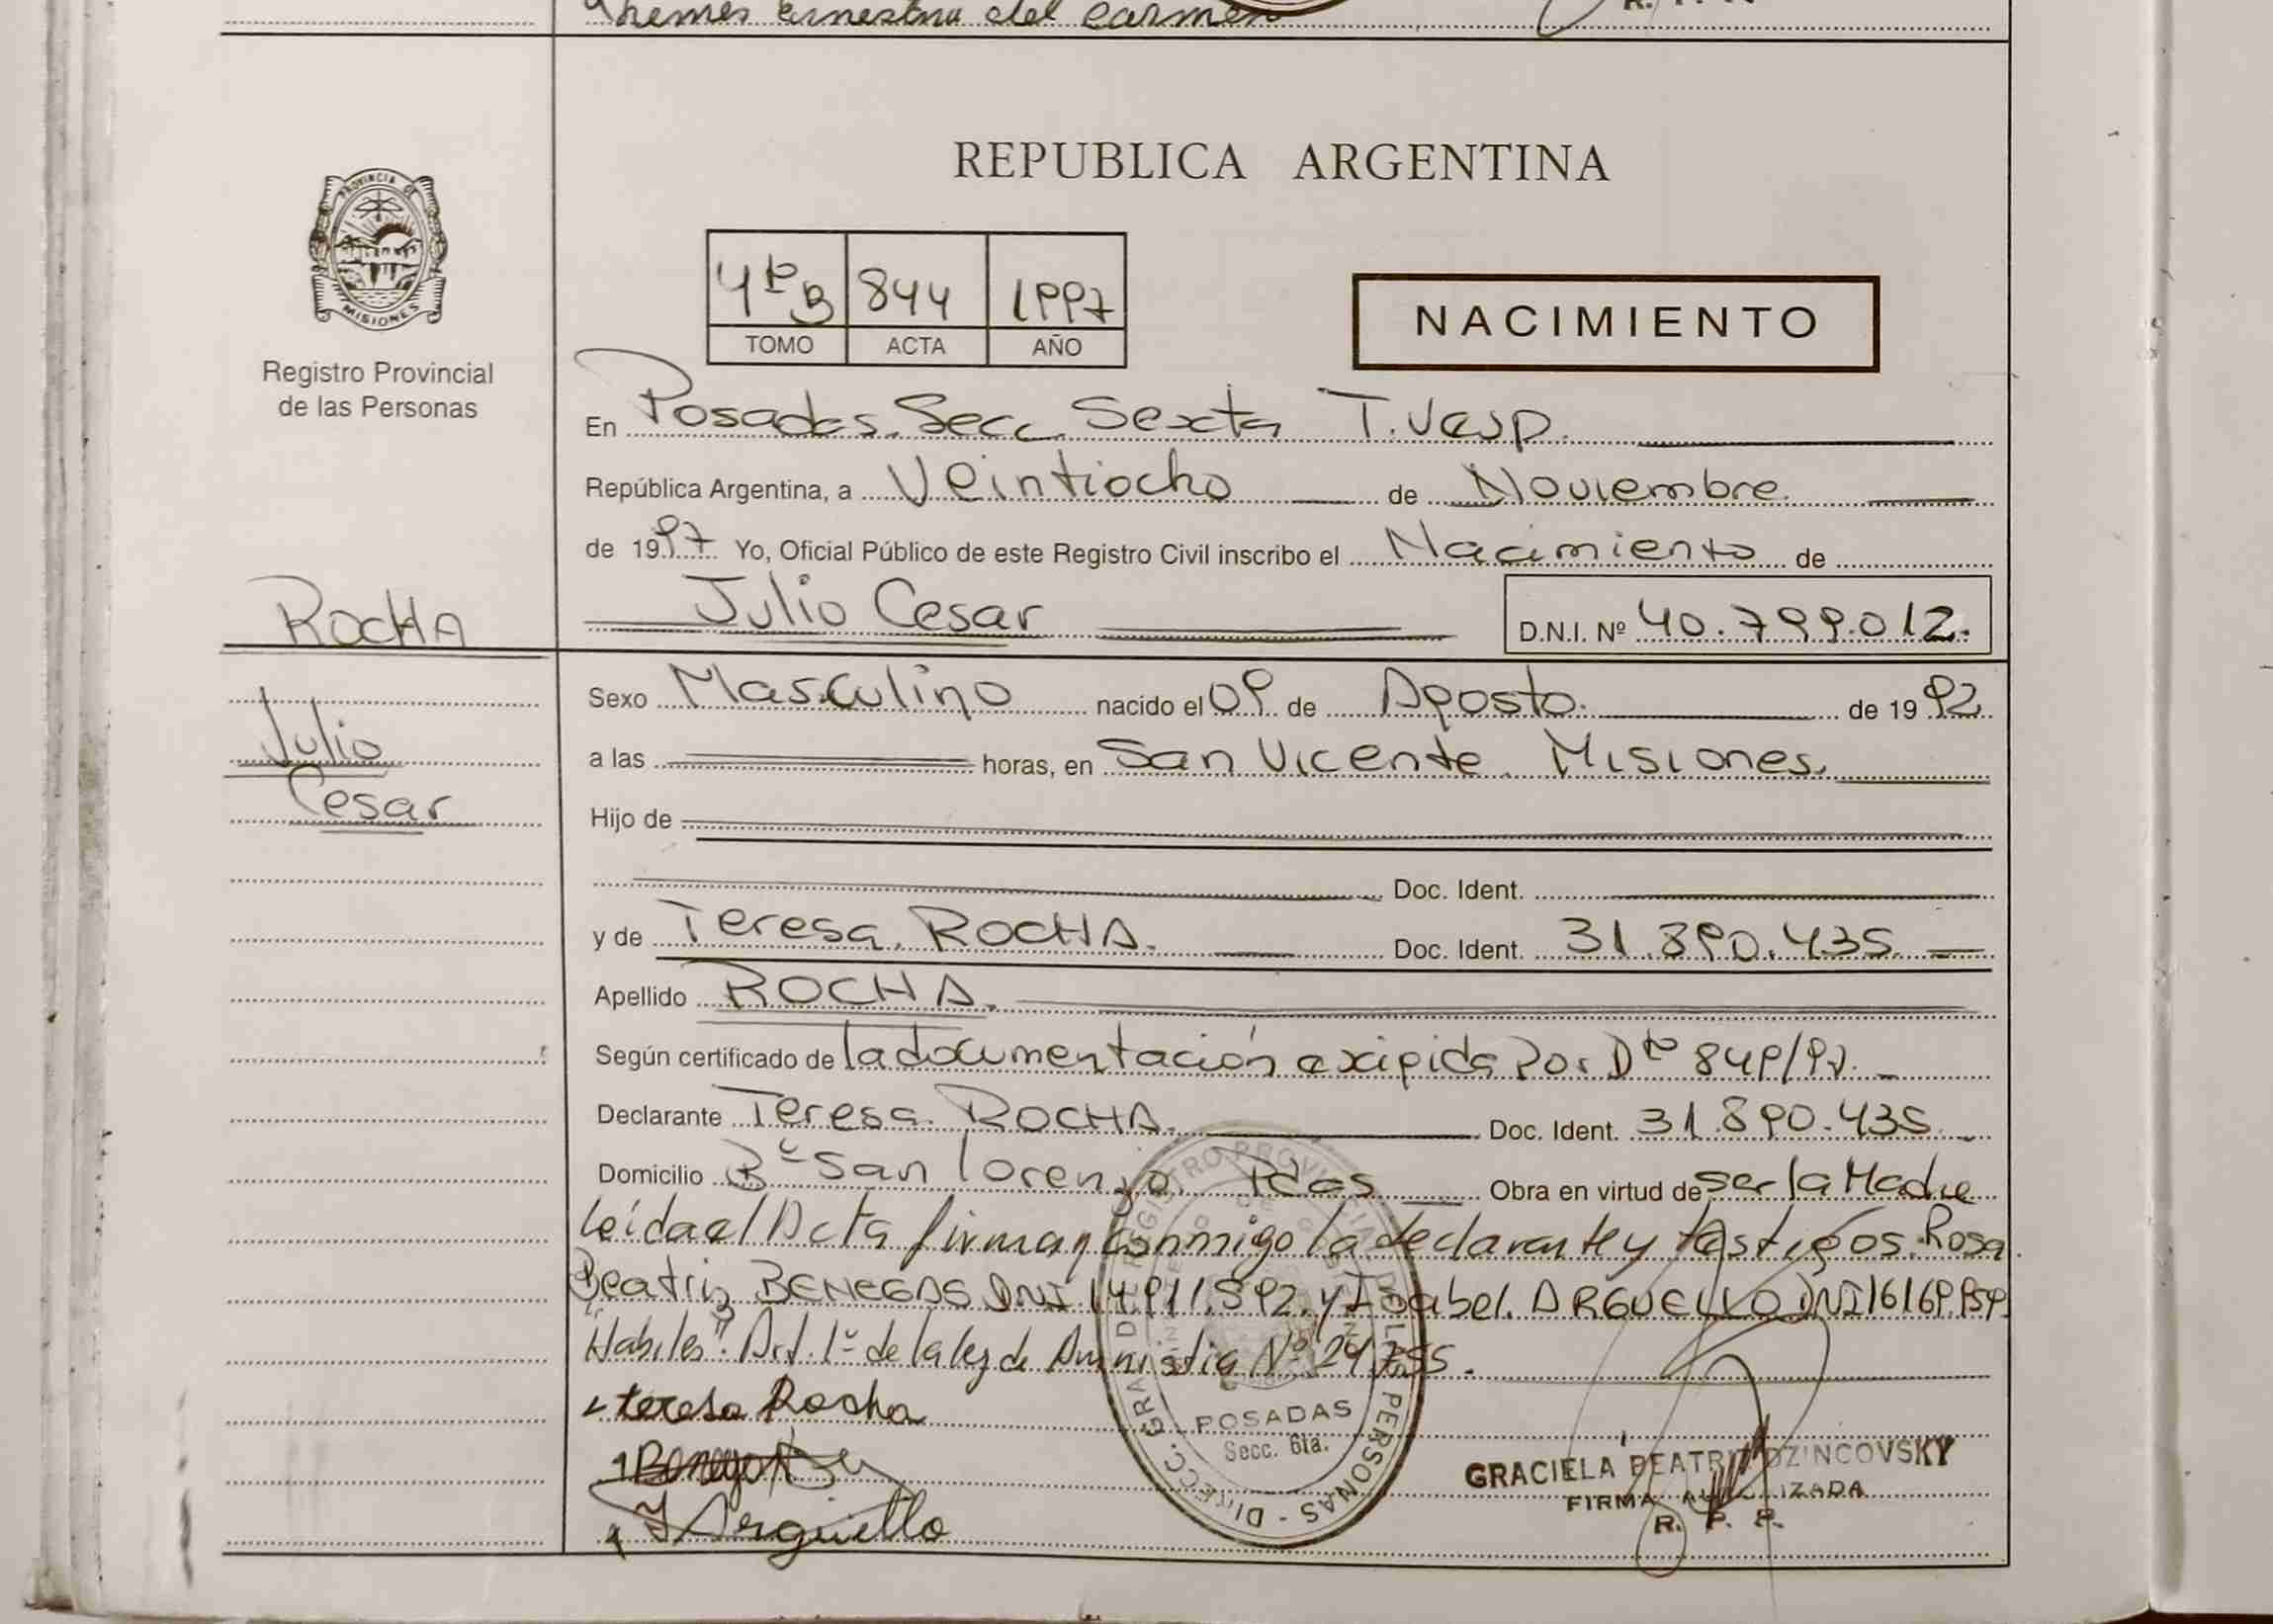 Themes Ernestina del Carmen
R. P. P.
PROVINCIA DE
MISIONES
Registro Provincial
de las Personas
REPUBLICA ARGENTINA
4to B 844 1997
TOMO ACTA AÑO
NACIMIENTO
En Posadas. Secc. Sexta T. Vesp.
República Argentina, a Veintiocho de Noviembre
de 1997 Yo, Oficial Público de este Registro Civil inscribo el Nacimiento de
ROCHA
Julio Cesar D.N.I. Nº 40.799.012.
Julio
Cesar
Sexo Masculino nacido el 09 de Agosto. de 1992
a las horas, en San Vicente Misiones.
Hijo de
Doc. Ident.
y de Teresa. ROCHA. Doc. Ident. 31.890.435.
Apellido ROCHA.
Según certificado de la documentación exigida Por Dto 849/97.
Declarante Teresa ROCHA. Doc. Ident. 31.890.435.
Domicilio Bº San Lorenzo. Pdas Obra en virtud de Ser la Madre
leída el Acta firman conmigo la declarante y testigos. Rosa
Beatriz BENEGAS DNI 14.911.592. y Isabel. ARGUELLO DNI 16169.959
"Habiles". Art. 1º de la ley de Amnistia Nº 24.755.
Teresa Rocha
I Arguello
REGISTRO PROVINCIAL DE LAS PERSONAS - DIRECC. GRAL.
POSADAS
Secc. 6ta.
GRACIELA BEATRIZ DZINCOVSKY
FIRMA AUTORIZADA
R. P. P.